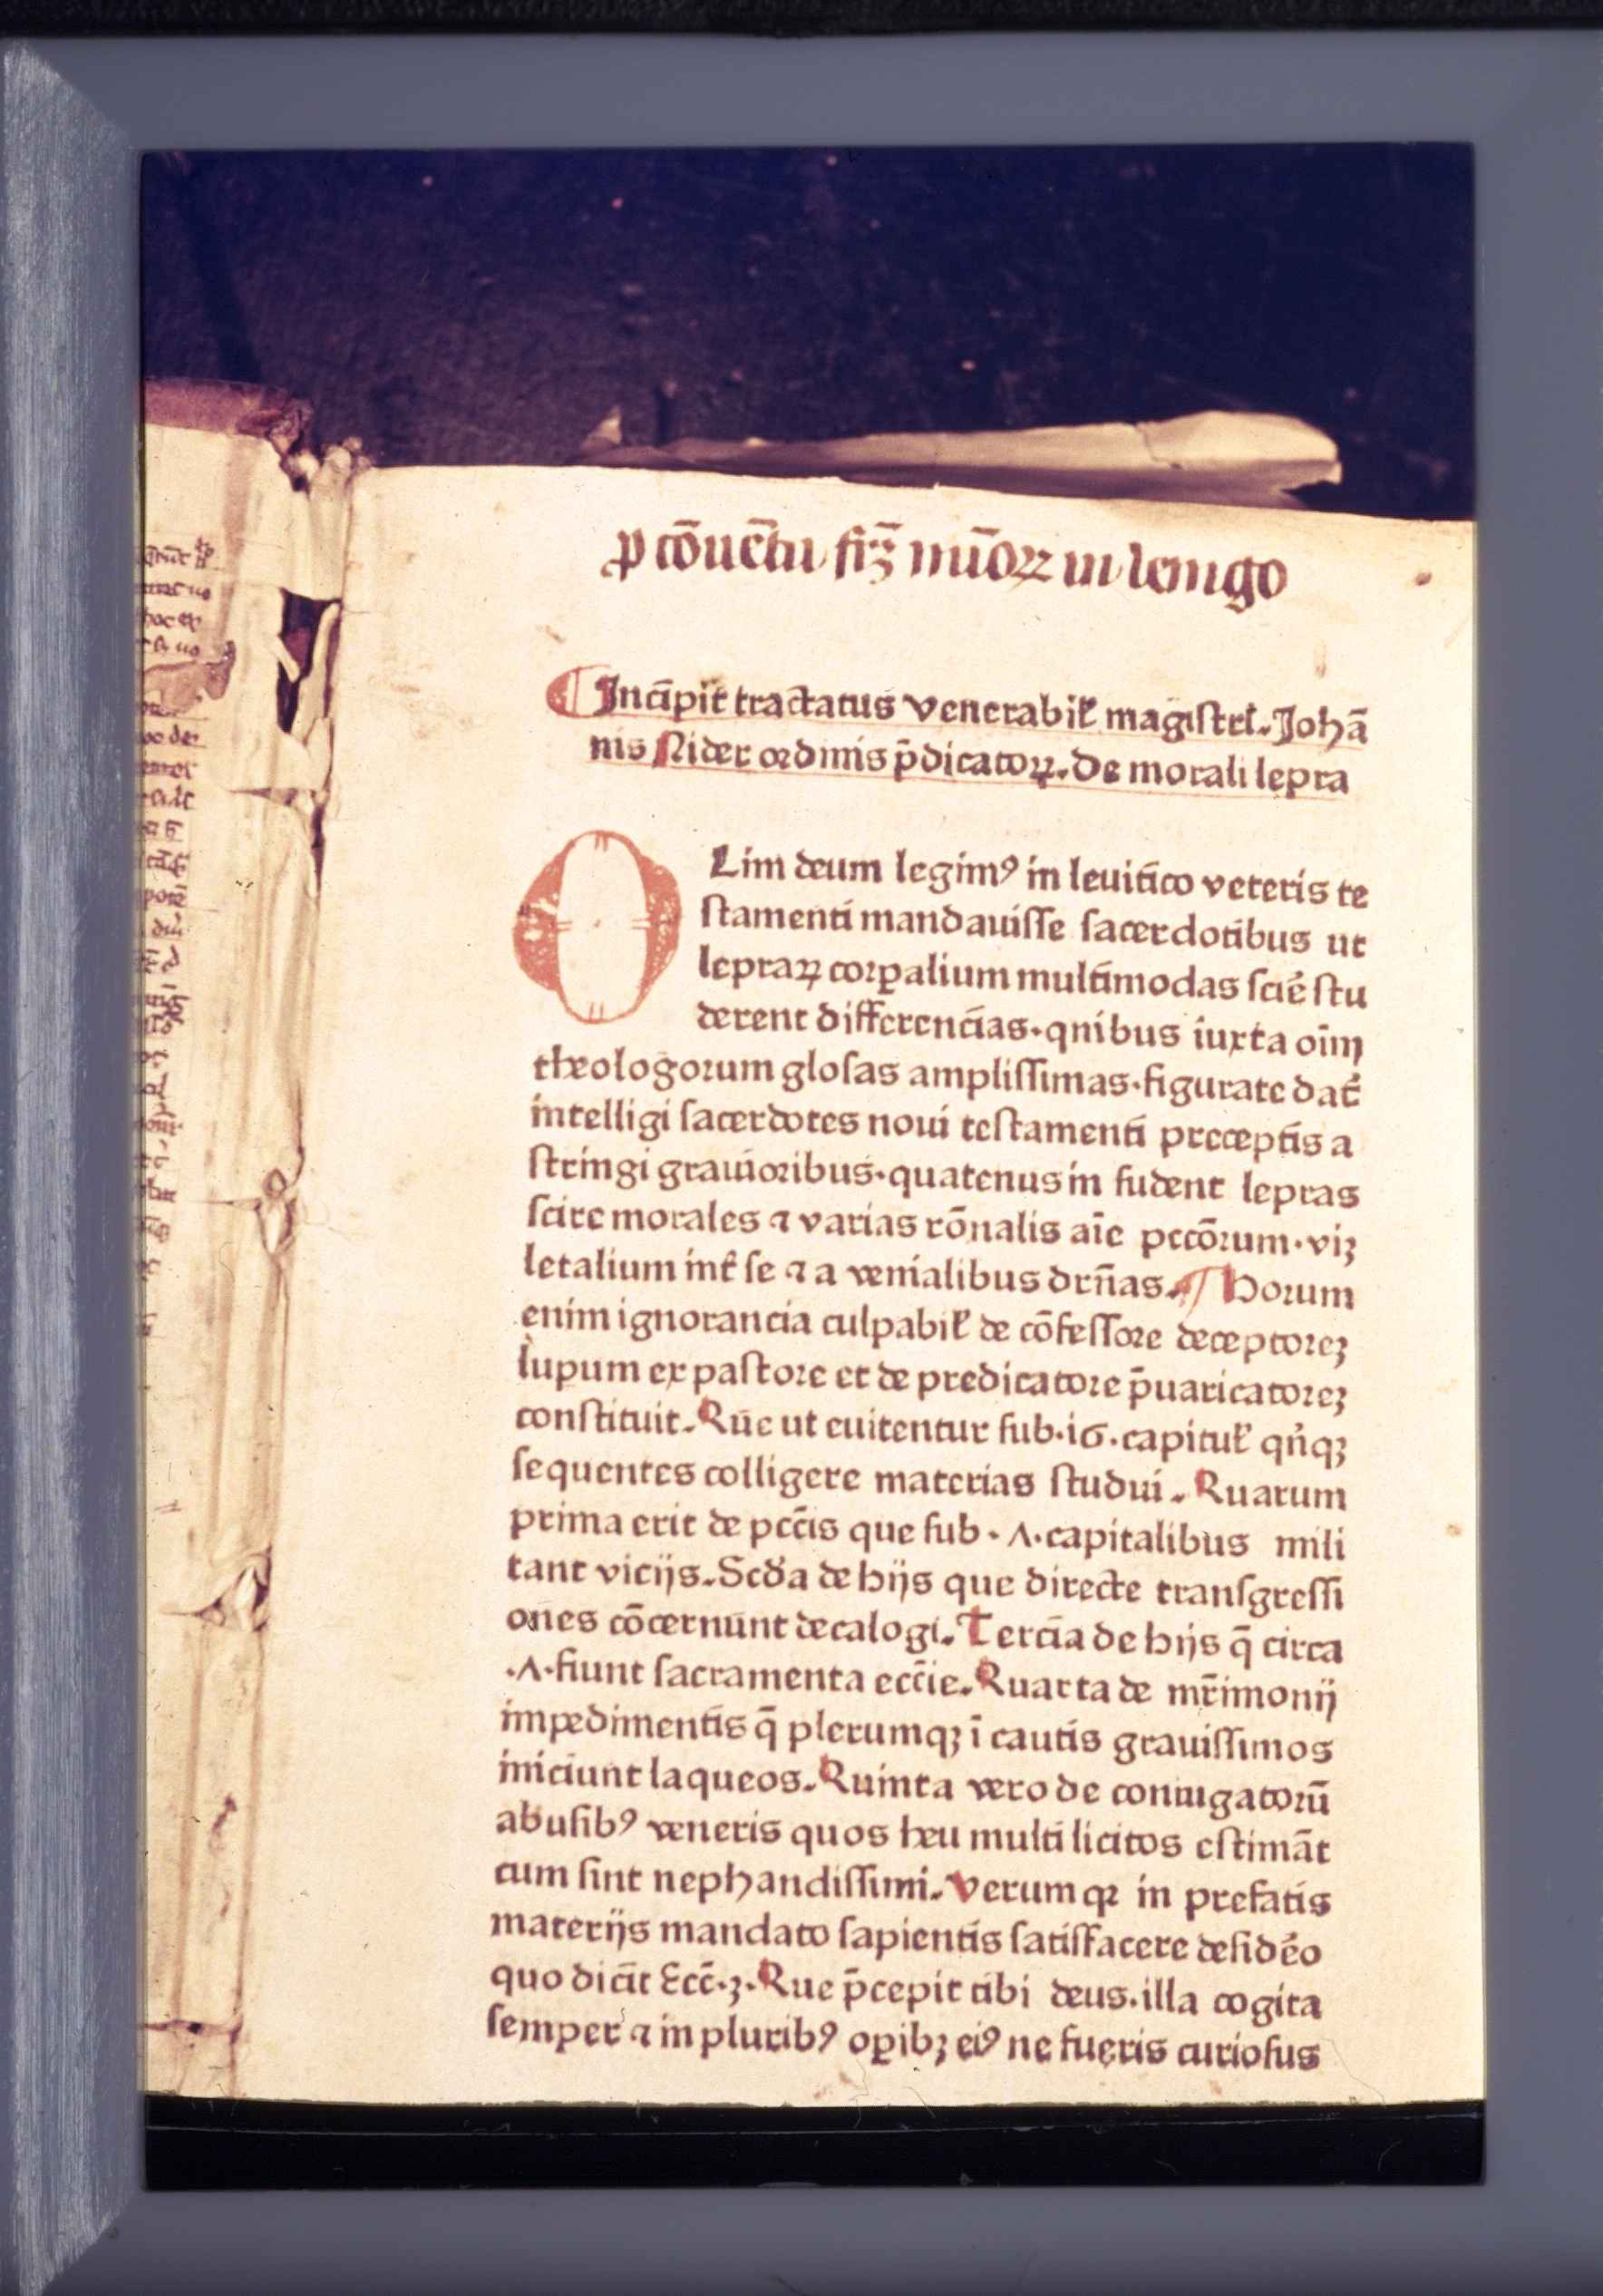 ꝑ cōuētu fr̄ꝫ mīoꝝ in lemgo
Incipit tractatus venerabiƚ magistri. Johā
nis Nider ordinis p̄dicatoꝝ. De morali lepra
OLim deum legimꝰ in leuitico veteris te
ſtamenti mandauiſſe ſacerdotibus ut
lepraꝝ corꝑalium multimodas ſcīe ſtu
derent differencias. qnibus iuxta oīm
theologorum gloſas ampliſſimas. figurate dat᷑
intelligi ſacerdotes noui teſtamenti preceptis a
ſtringi grauioribus. quatenus in fudent lepras
ſcire morales ⁊ varias rōnalis aīe peccōrum. viꝫ
letalium int᷑ ſe ⁊ a venialibus drn̄as. ¶ Horum
enim ignorancia culpabiƚ de cōfeſſore deceptoreꝫ
lupum ex paſtore et de predicatore p̄uaricatoreꝫ
conſtituit. Que ut euitentur ſub. 16. capituƚ qn̄qꝫ
ſequentes colligere materias ſtudui. Quarum
prima erit de pctīs que ſub. ꓥ. capitalibus mili
tant vicijs. Scd̄a de hijs que directe tranſgreſſi
ones cōcernunt decalogi. Tercia de hijs q̄ circa
.ꓥ. fiunt ſacramenta ecc̄ie. Quarta de mr̄imonij
impedimentis q̄ plerumqꝫ ī cautis grauiſſimos
iniciunt laqueos. Quinta vero de coniugatorū
abuſibꝰ veneris quos heu multi licitos eſtimāt
cum ſint nephandiſſimi. Verum qꝛ in prefatis
materijs mandato ſapientis ſatiſfacere deſidēo
quo dicit Ecc̄. 3. Que p̄cepit tibi deus. illa cogita
ſemper ⁊ in pluribꝰ oꝑibꝫ eiꝰ ne fueris curioſus